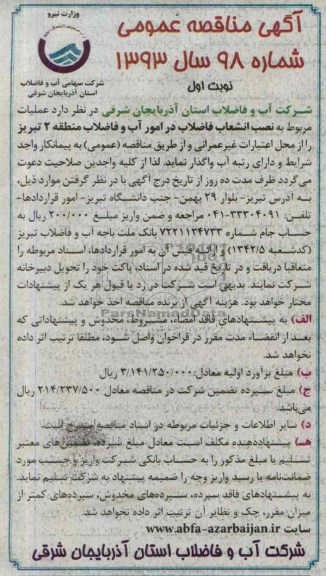 وزارت نیرو
شرکت سهامی آب و فاضلاب
استان آذربایجان شرقی
آگهی مناقصه عمومی
شماره ۹۸ سال ۱۳۹۳
نوبت اول
شرکت آب و فاضلاب استان آذربایجان شرقی در نظر دارد عملیات
مربوط به نصب انشعاب فاضلاب در امور آب و فاضلاب منطقه ۲ تبریز
را از محل اعتبارات غیرعمرانی و از طریق مناقصه (عمومی) به پیمانکار واجد
شرایط و دارای رتبه آب واگذار نماید. لذا از کلیه واجدین صلاحیت دعوت
می‌گردد ظرف مدت ده روز از تاریخ درج آگهی با در نظر گرفتن موارد ذیل،
به آدرس تبریز- بلوار ۲۹ بهمن- جنب دانشگاه تبریز- امور قراردادها-
تلفن: ۳۳۳۰۴۰۹۱-۰۴۱ مراجعه و ضمن واریز مبلغ ۲۰۰/۰۰۰ ریال به
حساب جام شماره ۷۲۲۱۱۳۴۷۳۳ بانک ملت باجه آب و فاضلاب تبریز
(کدشعبه ۱۳۴۲/۵) و ارائه فیش آن به امور قراردادها، اسناد مربوطه را
متعاقبا دریافت و در تاریخ قید شده در اسناد، پاکت خود را تحویل دبیرخانه
شرکت نمایند. بدیهی است شرکت در رد یا قبول هر یک از پیشنهادات
مختار خواهد بود. هزینه آگهی از برنده مناقصه اخذ خواهد شد.
الف) به پیشنهادهای فاقد امضاء، مشروط، مخدوش و پیشنهاداتی که
بعد از انقضاء مدت مقرر در فراخوان واصل شود، مطلقا ترتیب اثر داده
نخواهد شد.
ب) مبلغ برآورد اولیه معادل: ۳/۱۴۱/۲۵۰/۰۰۰ ریال
ج) مبلغ سپرده تضمین شرکت در مناقصه معادل ۲۱۴/۲۳۷/۵۰۰ ریال
می‌باشد.
د) سایر اطلاعات و جزئیات مربوطه در اسناد مناقصه مندرج است.
هـ) پیشنهاددهنده مکلف است معادل مبلغ سپرده، تضمین‌های معتبر
تسلیم یا مبلغ مذکور را به حساب بانکی شرکت واریز و حسب مورد
ضمانت‌نامه یا رسید واریز وجه را ضمیمه پیشنهاد به شرکت تسلیم نماید.
به پیشنهادهای فاقد سپرده، سپرده‌های مخدوش، سپرده‌های کمتر از
میزان مقرر، چک و نظایر آن ترتیب اثر داده نخواهد شد.
سایت www.abfa-azarbaijan.ir
شرکت آب و فاضلاب استان آذربایجان شرقی
ParsNamadData